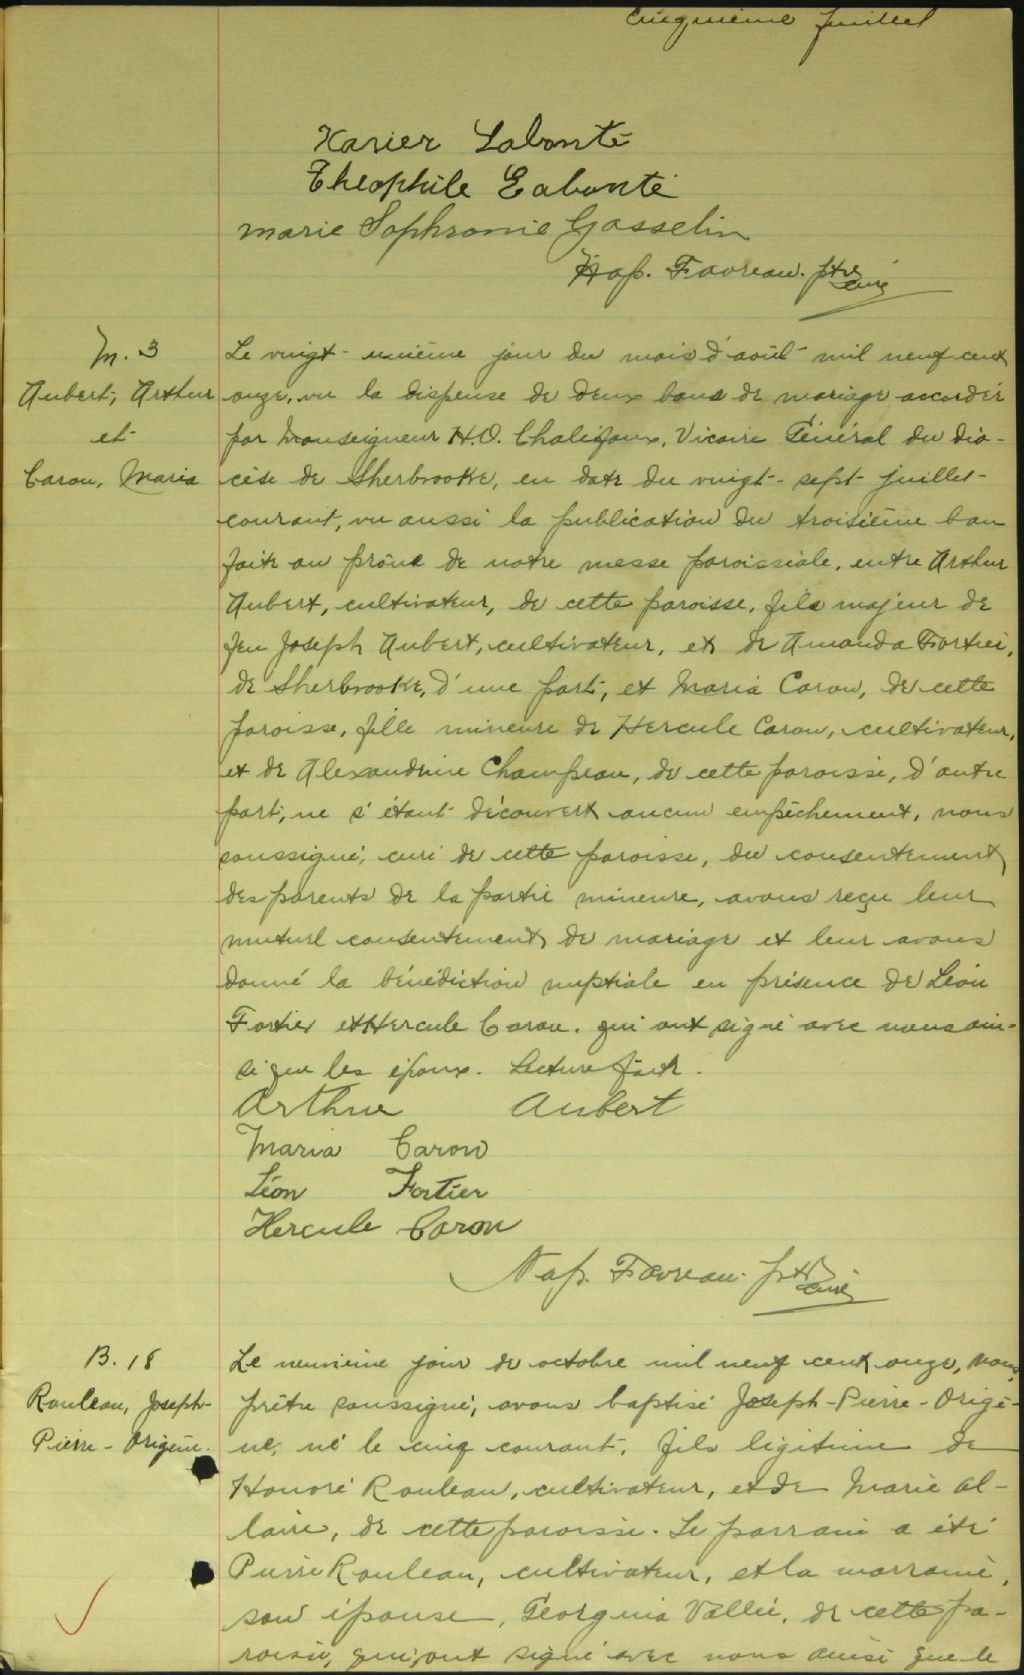 cinquième feuillet
Xavier Labonté
Théophile Labonté
marie Sophronie Gosselin
Nap. Favreau. ptre
curé
M. 3
Aubert, Arthur
et
Caron, Maria
Le vingt-unième jour du mois d'août mil neuf cent
onze, vu la dispense de deux bans de mariage accordée
par Monseigneur H.O. Chalifoux, Vicaire Général du dio-
cèse de Sherbrooke, en date du vingt-sept juillet
courant, vu aussi la publication du troisième ban
faite au prône de notre messe paroissiale, entre Arthur
Aubert, cultivateur, de cette paroisse, fils majeur de
feu Joseph Aubert, cultivateur, et de Amanda Fortier,
de Sherbrooke, d'une part, et Maria Caron, de cette
paroisse, fille mineure de Hercule Caron, cultivateur,
et de Alexandrine Champeau, de cette paroisse, d'autre
part, ne s'étant découvert aucun empêchement, nous
soussigné, curé de cette paroisse, du consentement
des parents de la partie mineure, avons reçu leur
mutuel consentement de mariage et leur avons
donné la bénédiction nuptiale en présence de Léon
Fortier et Hercule Caron. qui ont signé avec nous ain-
si que les époux. Lecture faite.
Arthur Aubert
Maria Caron
Léon Fortier
Hercule Caron
Nap. Favreau. ptre
curé
B. 18
Rouleau, Joseph-
Pierre-Origène.
Le neuvième jour de octobre mil neuf cent onze, nous,
prêtre soussigné, avons baptisé Joseph-Pierre-Origè-
ne, né le cinq courant, fils légitime de
Honoré Rouleau, cultivateur, et de Marie Al-
laire, de cette paroisse. Le parrain a été
Pierre Rouleau, cultivateur, et la marraine,
son épouse, Géorgina Vallée, de cette pa-
roisse, qui ont signé avec nous ainsi que le